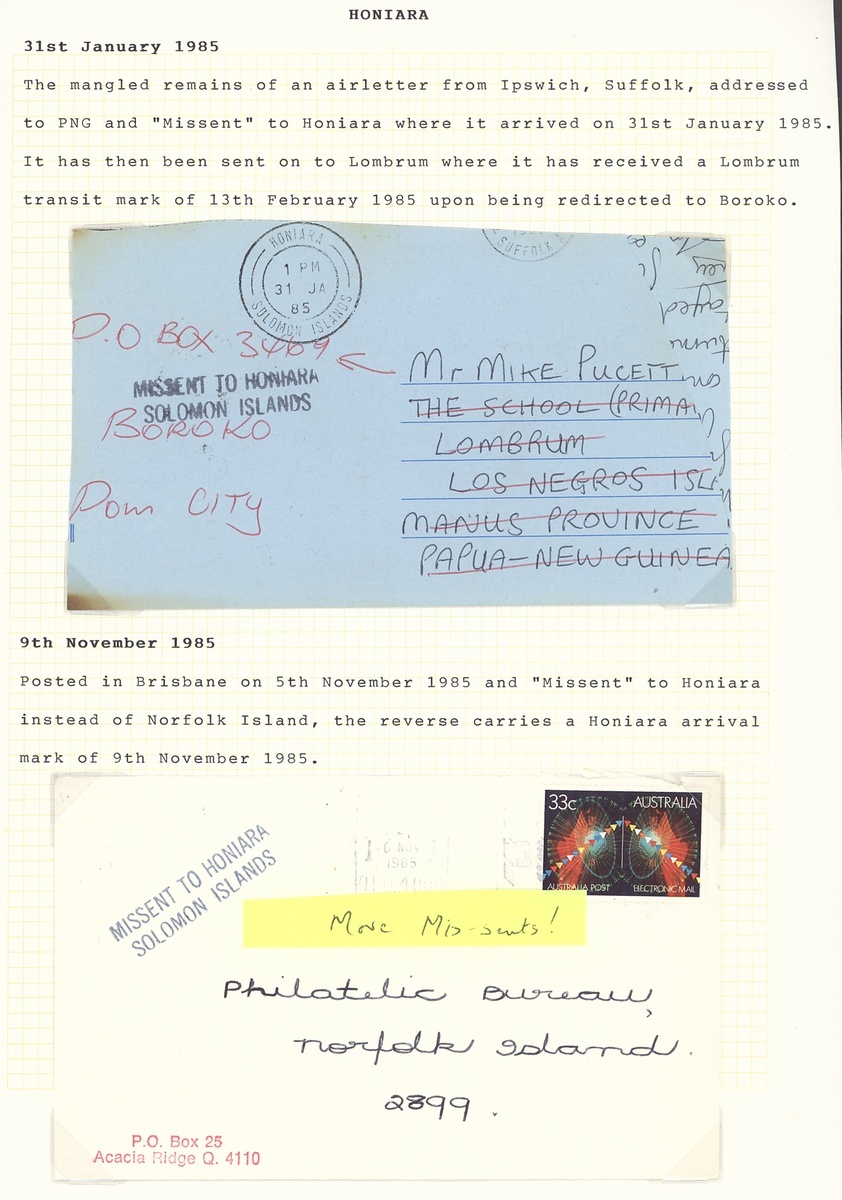 HONIARA
31st January 1985
The mangled remains of an airletter from Ipswich, Suffolk, addressed
to PNG and "Missent" to Honiara where it arrived on 31st January 1985.
It has then been sent on to Lombrum where it has received a Lombrum
transit mark of 13th February 1985 upon being redirected to Boroko.
HONIARA
1 PM
31 JA
85
SOLOMON ISLANDS
SUFFOLK
P.O BOX 3469
MISSENT TO HONIARA
SOLOMON ISLANDS
BOROKO
Pom CITY
Mr MIKE PUCETT
THE SCHOOL (PRIMA
LOMBRUM
LOS NEGROS ISL
MANUS PROVINCE
PAPUA-NEW GUINEA
9th November 1985
Posted in Brisbane on 5th November 1985 and "Missent" to Honiara
instead of Norfolk Island, the reverse carries a Honiara arrival
mark of 9th November 1985.
33c AUSTRALIA
AUSTRALIA POST ELECTRONIC MAIL
NOV
1985
MISSENT TO HONIARA
SOLOMON ISLANDS
More Mis-sents!
Philatelic Bureau,
Norfolk Island.
2899.
P.O. Box 25
Acacia Ridge Q. 4110